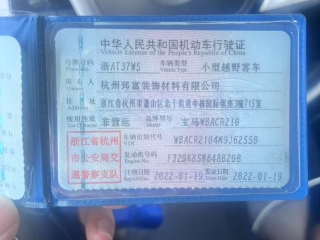 中华人民共和国机动车行驶证
Vehicle License of the People's Republic of China
号牌号码 Plate No. 浙AT37W5 车辆类型 Vehicle Type 小型越野客车
所有人 Owner 杭州邦富装饰材料有限公司
住址 Address 浙江省杭州市萧山区北干街道中栋国际银座2幢715室
使用性质 Use Character 非营运 品牌型号 Model 宝马WBACR210
浙江省杭州
市公安局交
通警察支队
车辆识别代号 VIN WBACR2104M9J62550
发动机号码 Engine No.
注册日期 Register Date 2022-01-19 发证日期 Issue Date 2022-01-19